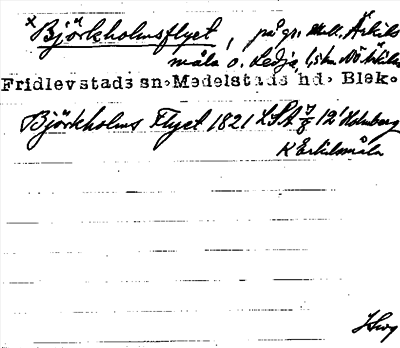 ˣBjörkholmsflyet, på gr. mell. Ärkils
måla o. Ledja, 1,5 km NÖ Ärkilsm
Fridlevstads sn. Medelstads hd. Blek.
Björkholms Flyet 1821 LSA 7/8 12' Holmberg
K Erkilsmåla